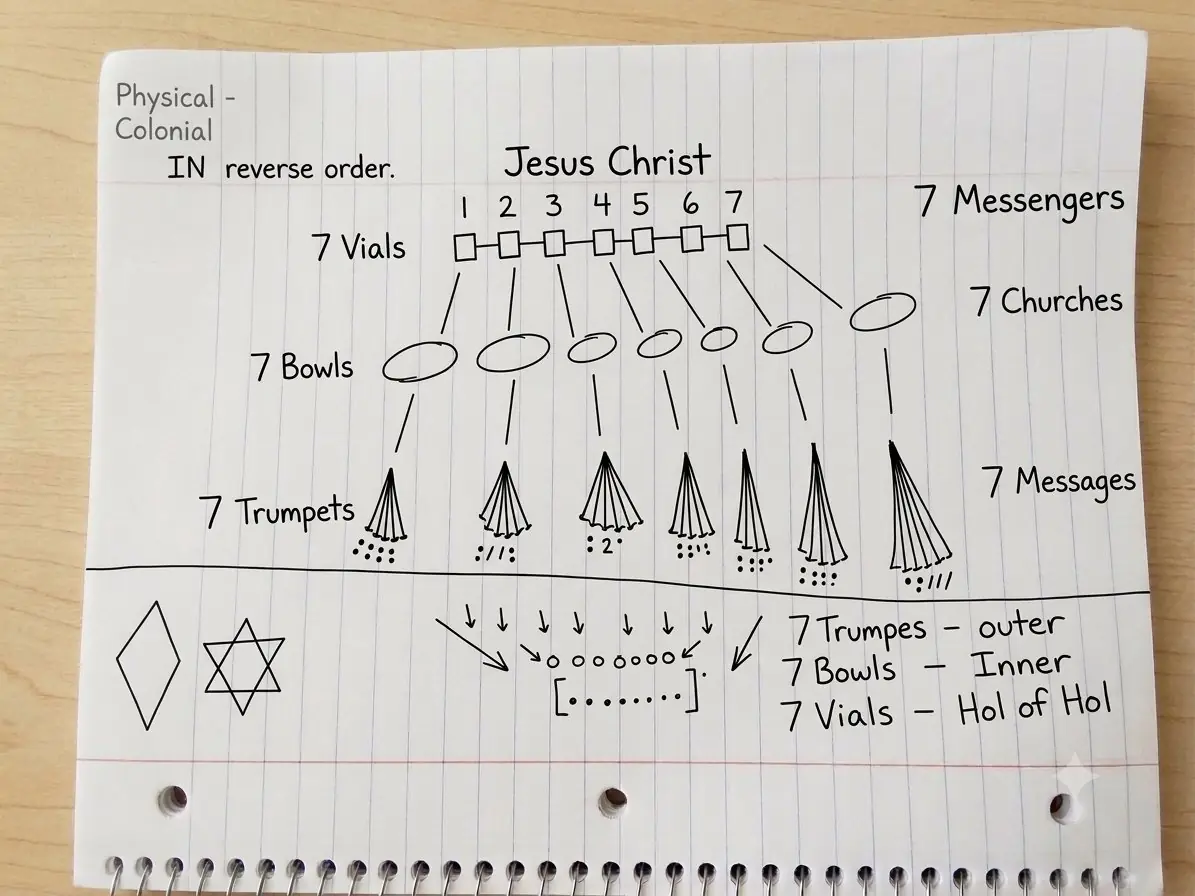 Physical -
Colonial
IN reverse order.
Jesus Christ
7 Messengers
1 2 3 4 5 6 7
7 Vials
7 Churches
7 Bowls
7 Messages
7 Trumpets
2
7 Trumpes - outer
7 Bowls - Inner
7 Vials - Hol of Hol